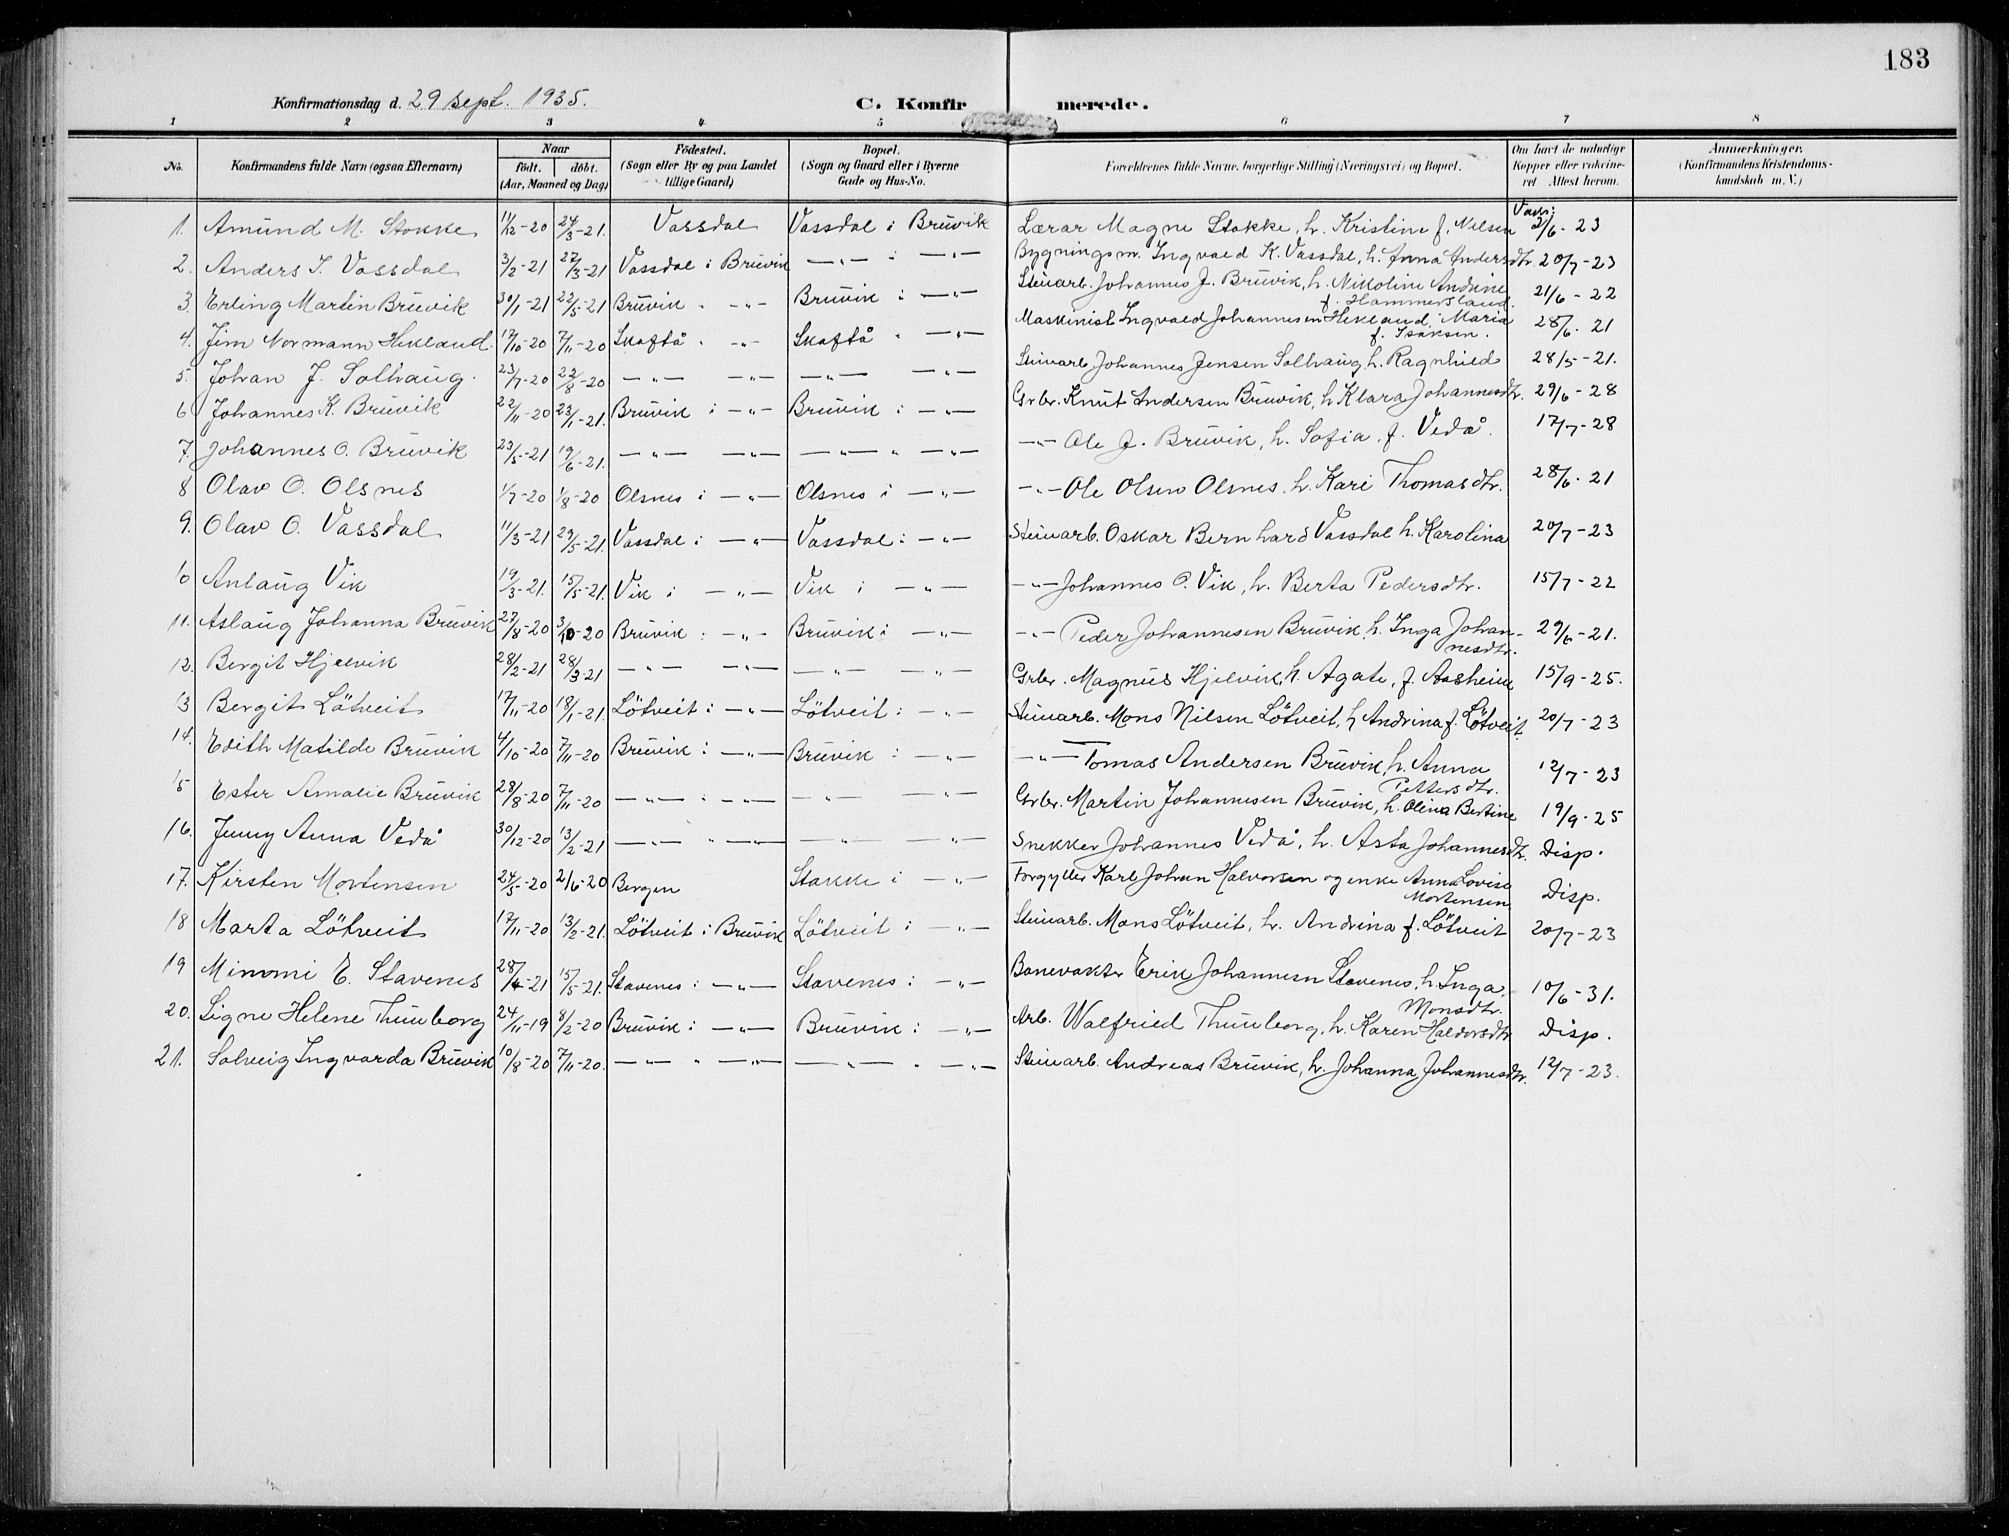 183
Konfirmationsdag d. 29 sept. 1935. C. Konfirmerede.
1 2 3 4. 5 6 7 8
No. Konfirmandens fulde Navn (ogsaa Efternavn) Naar födt. döbt. (Aar, Maaned og Dag) Födested. (Sogn eller By og paa Landet tillige Gaard) Bopæl. (Sogn og Gaard eller i Byerne Gade og Hus-No. Forældrenes fulde Navne, borgerlige Stilling (Næringsvei) og Bopæl. Om havt de naturlige Kopper eller vakcineret Attest herom. Anmærkninger. (Konfirmandens Kristendomskundskab m. V.)
1. Amund M. Stokke 11/12-20 24/3-21. Vassdal Vassdal i Bruvik Lærar Magne Stokke, h. Kristine f. Nilsen Vacs: 2/6-23
2. Anders I. Vassdal 3/2-21 27/3-21 Vassdal i Bruvik —"— : —"— Bygningsm. Ingvald K. Vassdal, h. Anna Andersdtr. 20/7-23
3. Erling Martin Bruvik 30/1-21 22/5-21 Bruvik " —"— Bruvik : —"— Steinarb. Johannes J. Bruvik, h. Nikoline Andrine f. Hammersland. 21/6-22
4. Jim Normann Hekland. 17/10-20 7/11-20 Skaftå " —"— Skaftå " —"— Maskinist Ingvald Johannesen Hekland, Maria f. Isaksen. 28/6-21
5. Johan J. Solhaug. 23/7-20 22/8-20 —"— —"— —"— —"— Steinarb Johannes Jensen Solhaug, h. Ragnhild 28/5-21.
6 Johannes K. Bruvik 22/11-20 23/1-21. Bruvik i —"— Bruvik : —"— Grbr. Knut Andersen Bruvik, h. Klara Johannesdtr. 29/6-28
7. Johannes O. Bruvik 23/5-21 19/6-21. —"— —"— —"— " —"— —"— Ole J. Bruvik, h. Sofia. f. Vedå. 17/7-28
8 Olav O. Olsnes 1/7-20 1/8-20 Olsnes i —"— Olsnes i —"— —"— Ole Olsen Olsnes, h. Kari Thomasdtr. 28/6-21
9. Olav O. Vassdal 11/3-21 29/5-21. Vassdal : —"— Vassdal : —"— Steinarb. Oskar Bernhard Vassdal h. Karolina 20/7-23
10 Anlaug Vik 19/3-21. 15/5-21. Vik i —"— Vik i —"— —"— Johannes O. Vik, h. Berta Pedersdtr. 15/7-22
11. Aslaug Johanna Bruvik 27/8-20 3/10-20 Bruvik : —"— Bruvik : —"— —"— Peder Johannesen Bruvik h. Inga Johannesdtr. 29/6-21.
12. Bergit Hjelvik 28/2-21 28/3 21 —"— —"— —"— —"— Grbr. Magnus Hjelvik, h. Agate, f. Aasheim 15/9-25.
13 Bergit Lötveit 17/11-20 18/1-21. Lötveit : —"— Lötveit : —"— Steinarb. Mons Nilsen Lötveit, h Andrina f. Lötveit 20/7-23
14. Edith Matilde Bruvik 4/10-20 7/11-20 Bruvik : —"— Bruvik : —"— —"— Tomas Andersen Bruvik, h. Anna Pettersdtr. 12/7-23
15 Ester Amalie Bruvik 28/8-20 7/11-20 —"— : —"— —"— —"— Grbr. Martin Johannesen Bruvik, h. Olina Bertine 19/9-25
16. Jenny Anna Vedå 30/12-20 13/2-21 —"— " —"— —"— —"— Snekker Johannes Vedå, h. Asta Johannesdtr. Disp.
17. Kirsten Mortensen 24/5-20 2/6-20 Bergen Stokke i —"— Forgyller Karl Johan Halvorsen og enke Anna Lovise Mortensen Disp.
18 Marta Lötveit 17/11-20 13/2-21. Lötveit i Bruvik Lötveit i —"— Steinarb. Mons Lötveit, h. Andrina f. Lötveit 20/7-23
19 Mimmi E. Stavenes 28/4-21 15/5-21. Stavenes : —"— Stavenes : —"— Banevakter Erik Johannesn Stavenes, h. Inga Monsdtr. 10/6-31.
20. Signe Helene Thunborg 24/11-19 8/2-20 Bruvik : —"— Bruvik : —"— Arb. Walfried Thunborg, h. Karen Haldorsdtr Disp.
21. Solveig Ingvarda Bruvik 10/8-20 7/11-20. —"— " —"— —"— " —"— Steinarb. Andreas Bruvik, h. Johanna Johannesdtr. 12/7-23.